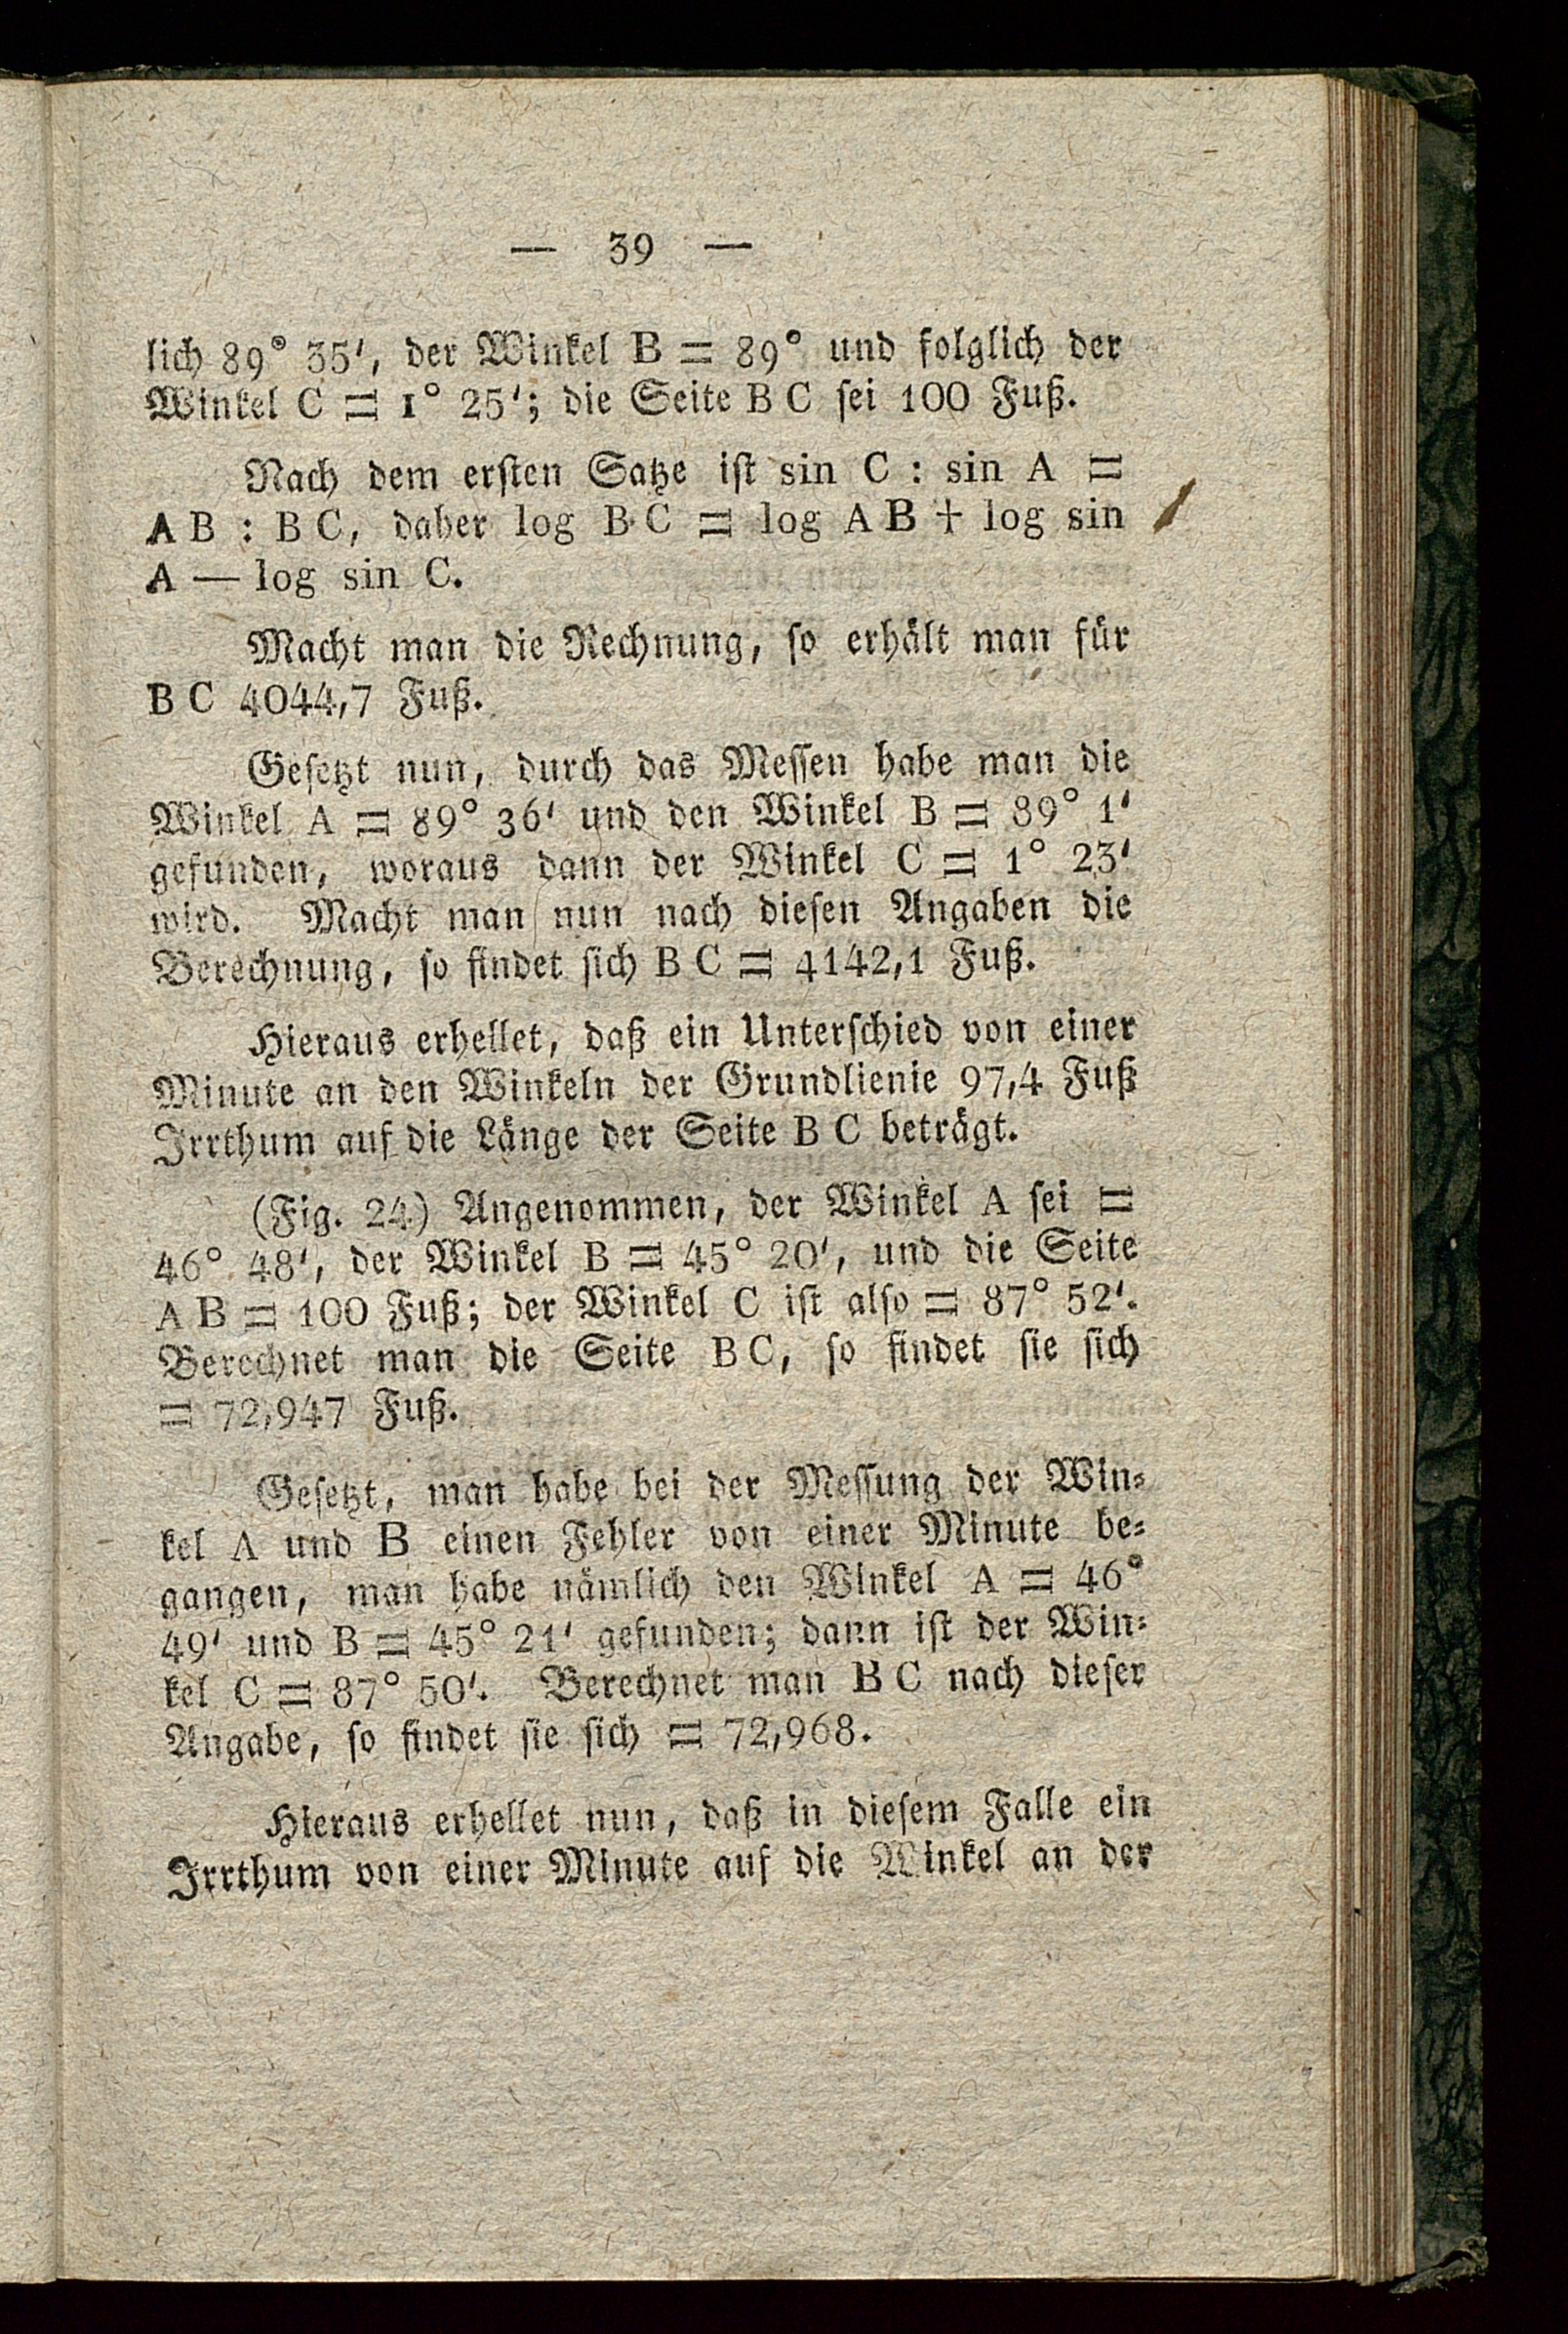 — 39 —
lich 89° 35′, der Winkel B = 89° und folglich der
Winkel C = 1° 25′; die Seite B C sei 100 Fuß.
Nach dem ersten Satze ist sin C : sin A =
A B : B C, daher log B C = log A B + log sin
A — log sin C.
Macht man die Rechnung, so erhält man für
B C 4044,7 Fuß.
Gesetzt nun, durch das Messen habe man die
Winkel A = 89° 36′ und den Winkel B = 89° 1′
gefunden, woraus dann der Winkel C = 1° 23′
wird. Macht man nun nach diesen Angaben die
Berechnung, so findet sich B C = 4142,1 Fuß.
Hieraus erhellet, daß ein Unterschied von einer
Minute an den Winkeln der Grundlienie 97,4 Fuß
Irrthum auf die Länge der Seite B C beträgt.
(Fig. 24) Angenommen, der Winkel A sei =
46° 48′, der Winkel B = 45° 20′, und die Seite
A B = 100 Fuß; der Winkel C ist also = 87° 52′.
Berechnet man die Seite B C, so findet sie sich
= 72,947 Fuß.
Gesetzt, man habe bei der Messung der Win-
kel A und B einen Fehler von einer Minute be-
gangen, man habe nämlich den Winkel A = 46°
49′ und B = 45° 21′ gefunden; dann ist der Win-
kel C = 87° 50′. Berechnet man B C nach dieser
Angabe, so findet sie sich = 72,968.
Hieraus erhellet nun, daß in diesem Falle ein
Irrthum von einer Minute auf die Winkel an der